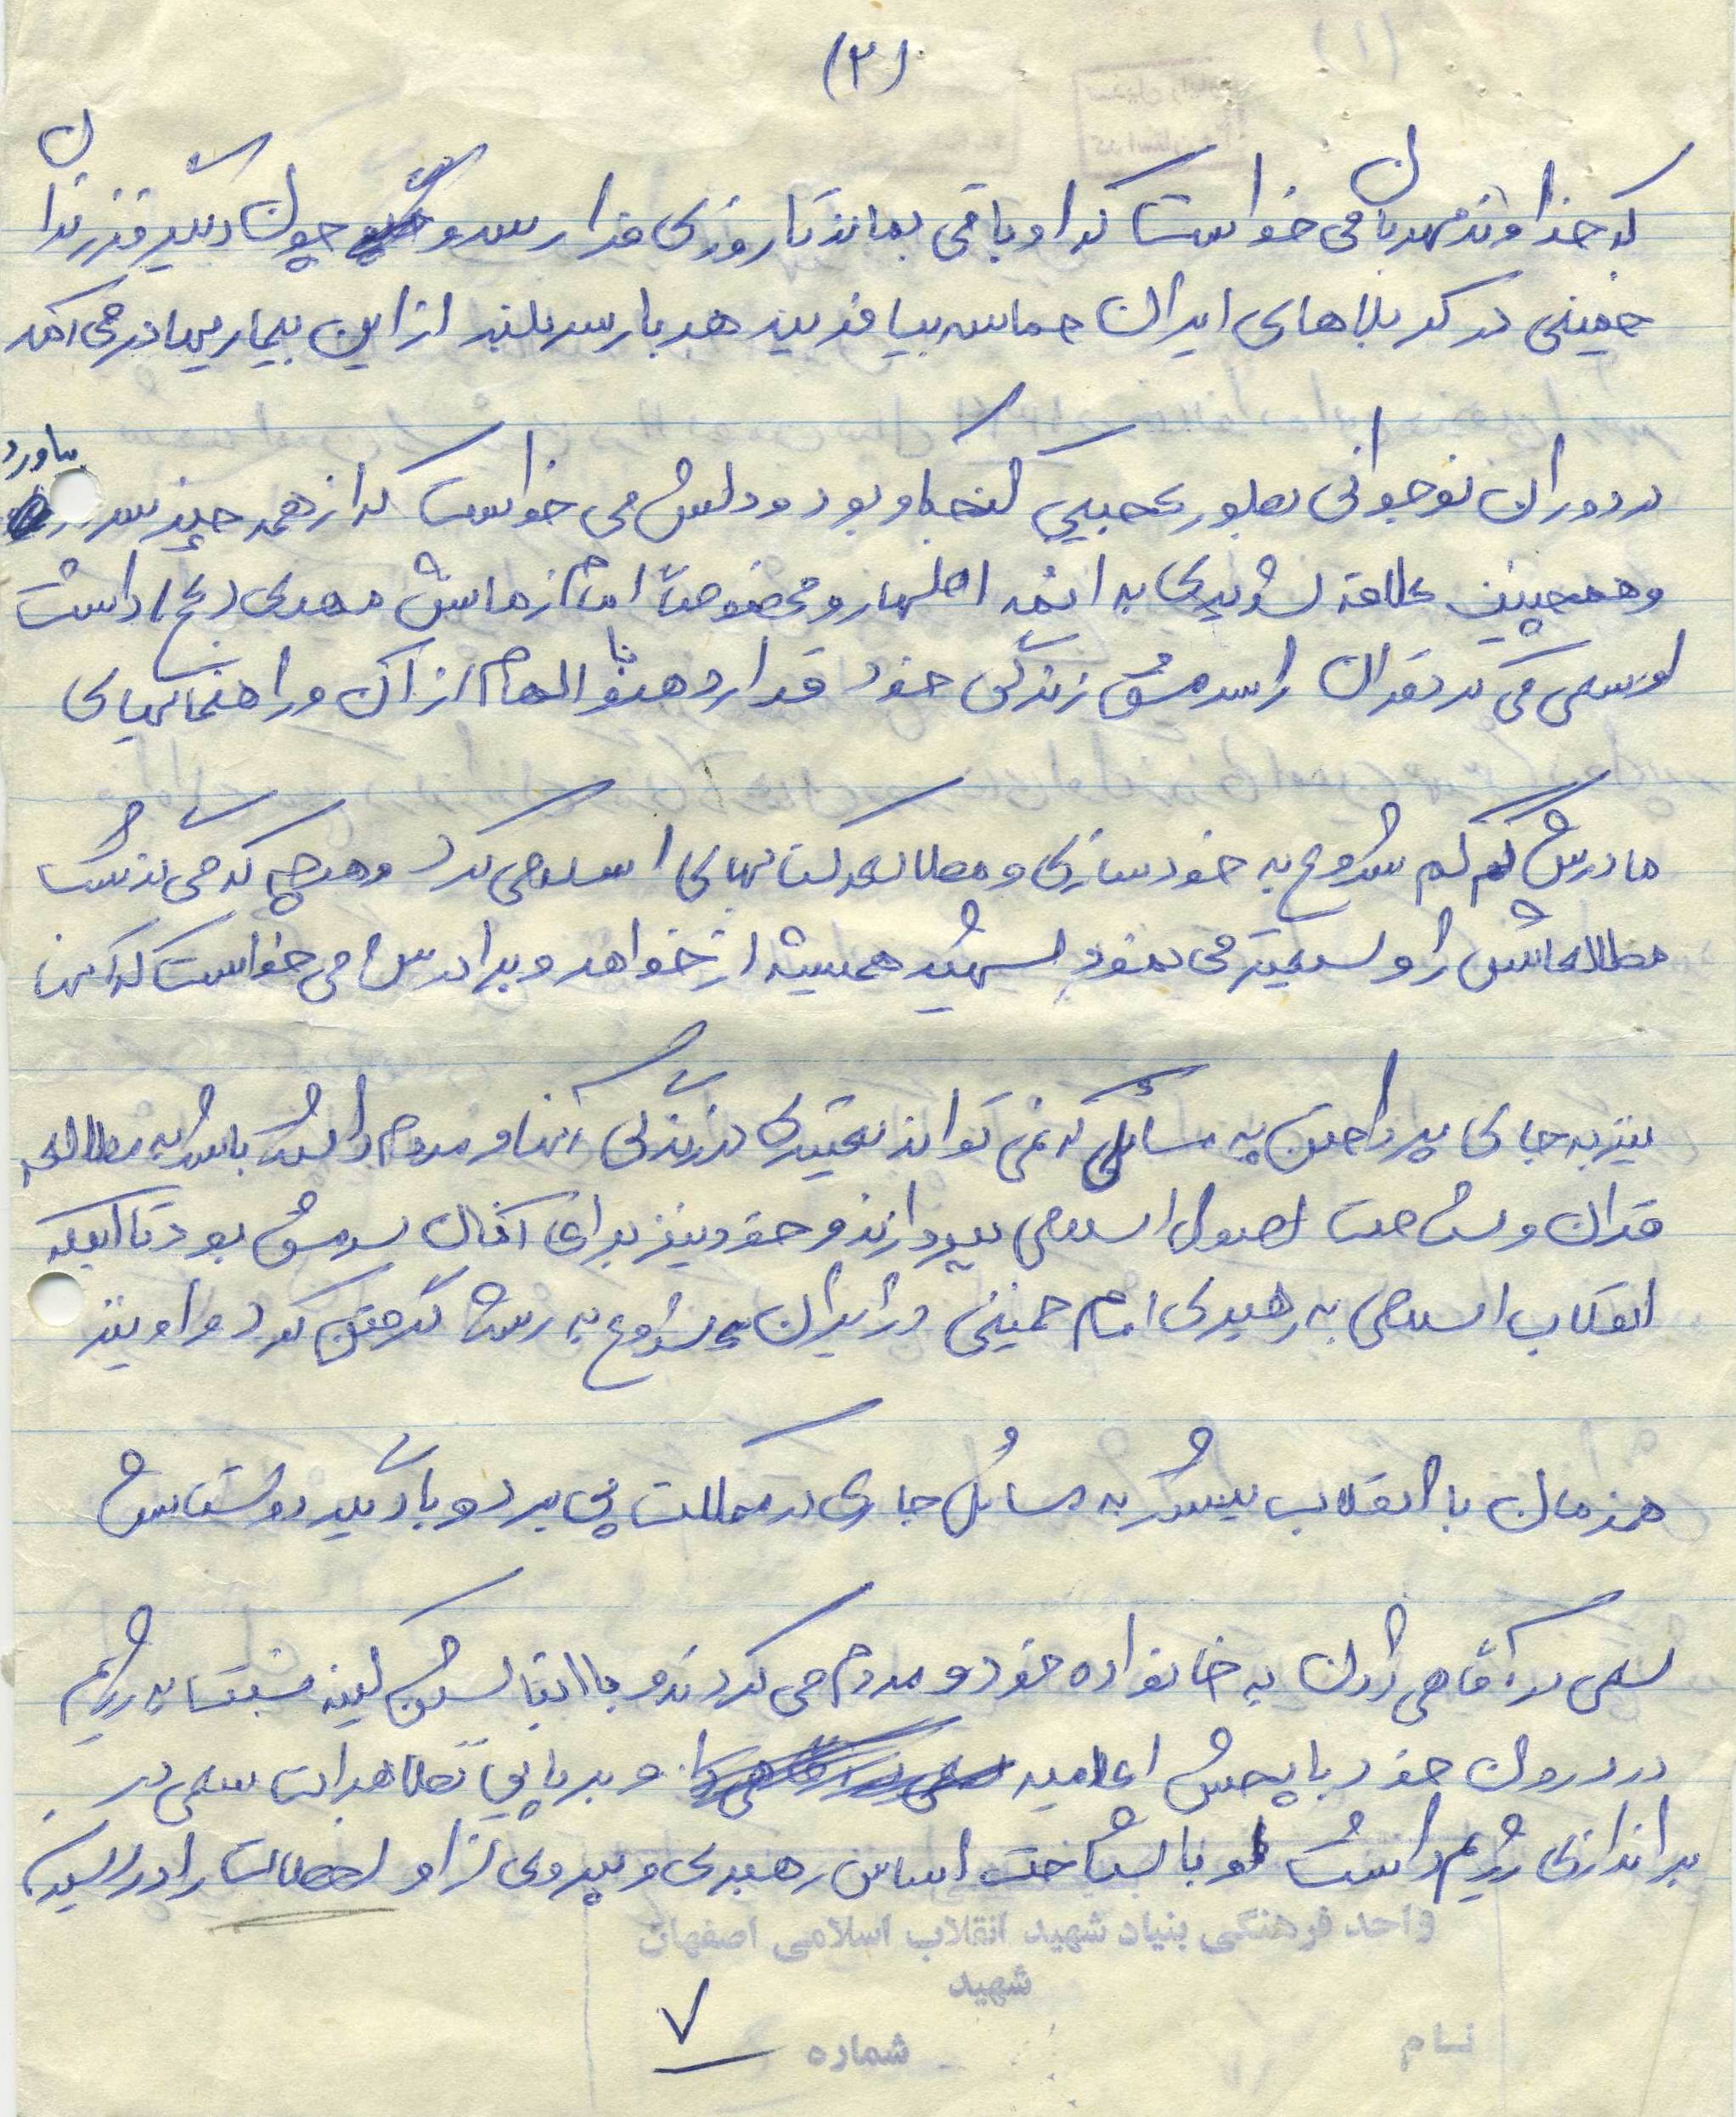 (۲)
که خداوند مهربان می خواست که او باقی بماند تا روزی فرا رسد و چون دیگر فرزندان
خمینی در کربلاهای ایران حماسه بیافریند هر بار سربلند از این بیماریها در می آمد
در دوران نوجوانی بطور عجیبی کنجکاو بود و دلش می خواست که از همه چیز سر در بیاورد
و همچنین علاقه شدیدی به ائمه اطهار و مخصوصاً امام زمانش مهدی (عج) داشت
او سعی می کرد قرآن را سرمشق زندگی خود قرار دهد و با الهام از آن و راهنمائیهای
مادرش کم کم شروع به خودسازی و مطالعه کتابهای اسلامی کرد و هر چه که می گذشت
مطالعاتش را وسیعتر می نمود شهید همیشه از خواهر و برادرش می خواست که آنها
نیز به جای پرداختن به مسائلی که نمی تواند تغییری در زندگی آنها و مردم داشته باشد به مطالعه
قرآن و شناخت اصول اسلامی بپردازند و خود نیز برای آنان سرمشق بود تا اینکه
انقلاب اسلامی به رهبری امام خمینی در ایران شروع به رشد گرفتن کرد و او نیز
همزمان با انقلاب بیشتر به مسائل جاری در مملکت پی برد و با دیگر دوستانش
سعی در آگاهی دادن به خانواده خود و مردم می کردند و با انباشتن کینه نسبت به رژیم
در درون خود با پخش اعلامیه و برپایی تظاهرات سعی در
براندازی رژیم داشت او با شناخت اساس رهبری و پیروی از او را در
واحد فرهنگی بنیاد شهید انقلاب اسلامی اصفهان
شهید
نام شماره ۷